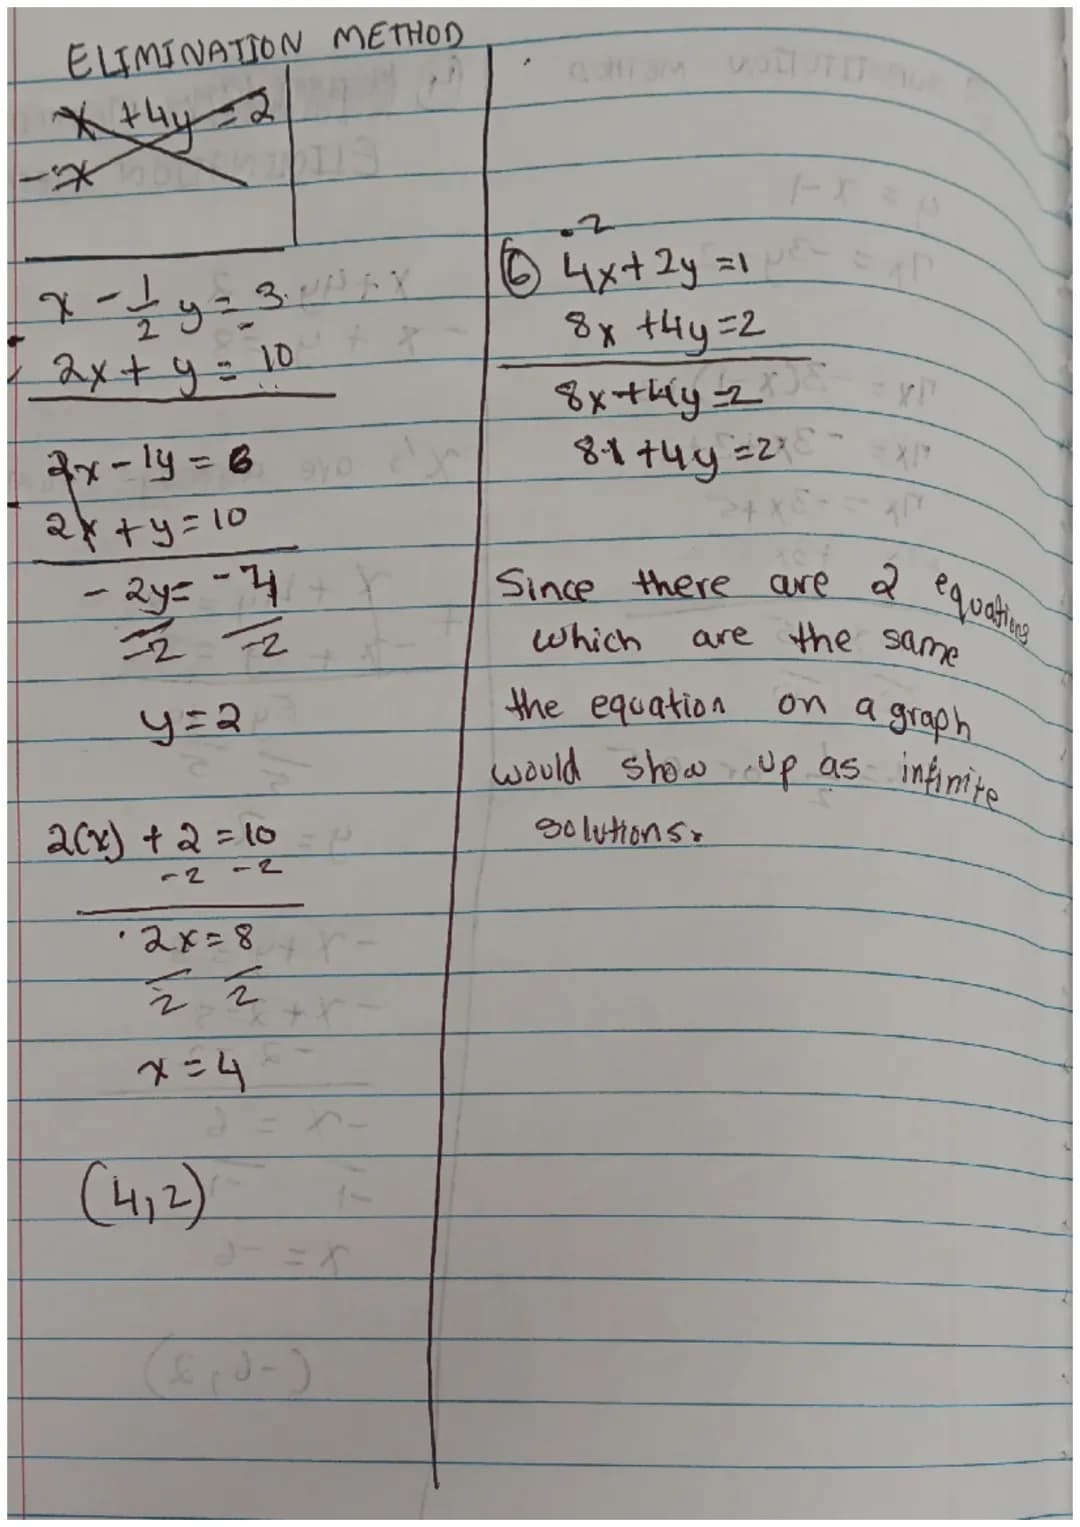 ELIMINATION METHOD
x + 4y = 2
-x
x - 1/2 y = 3
2x + y = 10
2x - 1y = 6
2x + y = 10
- 2y = -4
-2 -2
y = 2
2(x) + 2 = 10
-2 -2
2x = 8
2 2
x = 4
(4,2)
.2
⑥ 4x + 2y = 1
8x + 4y = 2
8x + 4y = 2
8x + 4y = 2
Since there are 2 equations
which are the same
the equation on a graph
would show up as infinite
solutions.